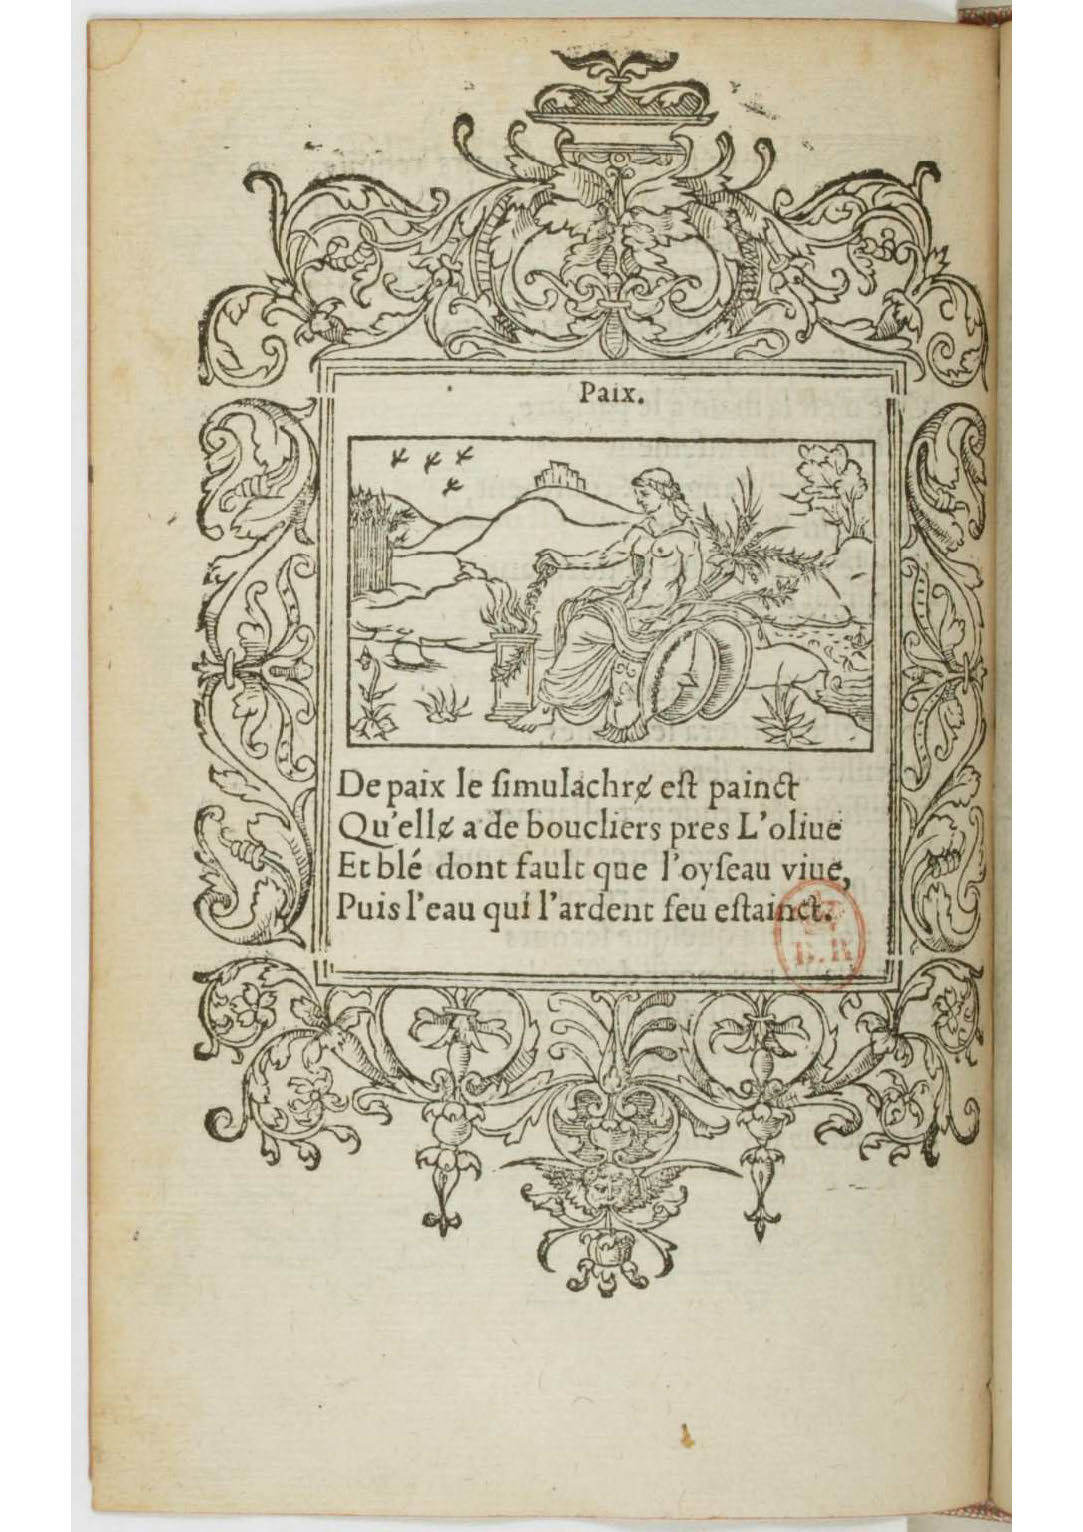 Paix.
De paix le ſimulachrɇ eſt painct
Qu'ellɇ a de boucliers pres L'oliue
Et blé dont fault que l'oyſeau viue,
Puis l'eau qui l'ardent feu eſtainct.
B.R